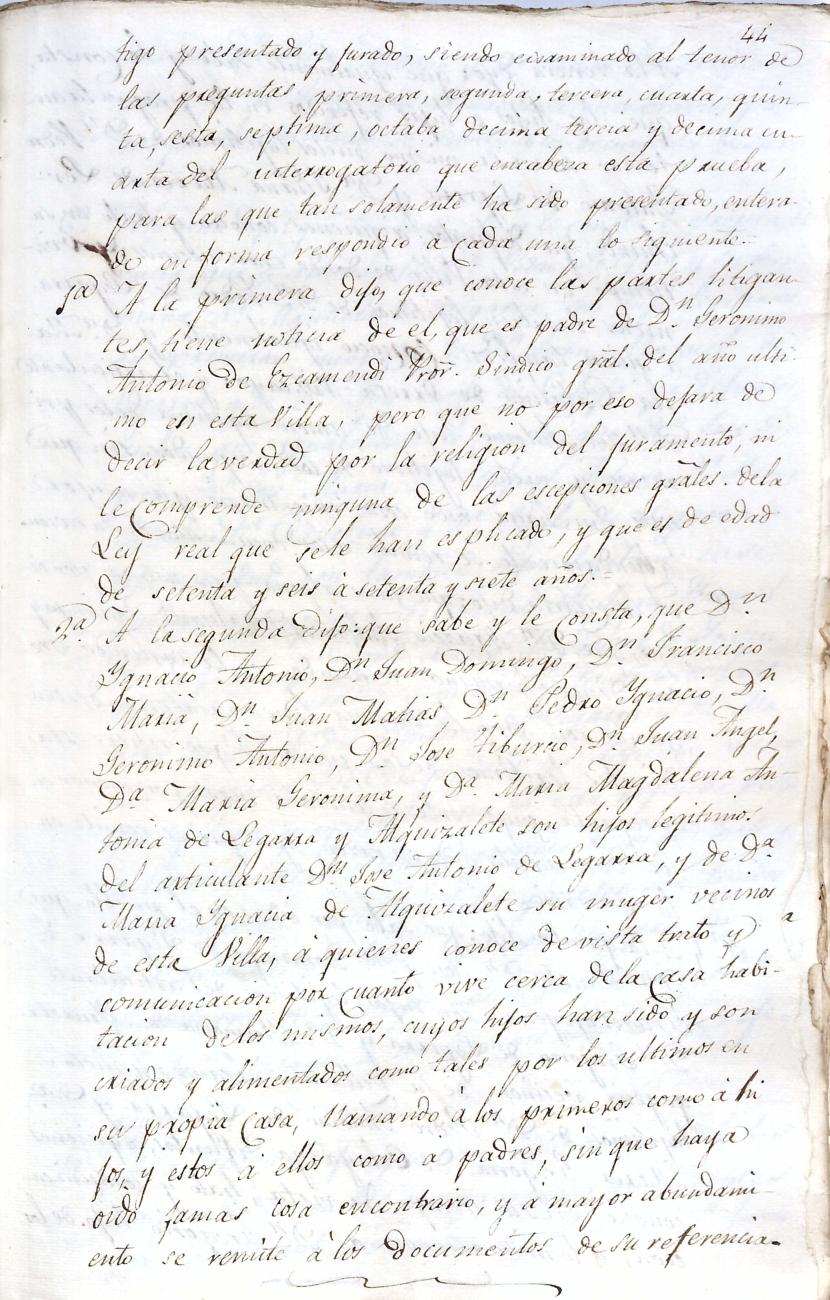 44
tigo presentado y jurado, siendo ecsaminado al tenor de
las preguntas primera, segunda, tercera, cuarta, quin-
ta, sesta, septima, octaba decima tercia y decima cu-
arta del interrogatorio que encabeza esta prueba,
para las que tan solamente ha sido presentado, entera-
do en forma respondio a cada una lo siguiente=
1ª A la primera dijo, que conoce las partes litigan-
tes, tiene noticia de el, que es padre de Dn Geronimo
Antonio de Ezeamendi Pror. Sindico gral. del año ulti-
mo en esta Villa, pero que no por eso dejara de
decir la verdad por la religion del juramento, ni
le comprende ninguna de las escepciones gràles. dela
Ley real que sele han esplicado, y que es de edad
de setenta y seis à setenta y siete años.=
2ª A la segunda dijo: que sabe y le consta, que Dn
Ygnacio Antonio, Dn Juan Domingo, Dn Francisco
Maria, Dn Juan Matias, Dn Pedro Ygnacio, Dn
Geronimo Antonio, Dn Jose Tiburcio, Dn Juan Angel,
Da Maria Geronima, y Da Maria Magdalena An-
tonia de Legarra y Alquizalete son hijos legitimos
del articulante Dn Jose Antonio de Legarra, y de Da
Maria Ygnacia de Alquizalete su muger vecinos
de esta Villa, à quienes conoce de vista trato y
comunicacion por cuanto vive cerca de la casa habi-
tacion delos mismos, cuyos hijos han sido y son
criados y alimentados como tales por los ultimos en
su propia casa, llamando à los primeros como à hi
jos, y estos à ellos como à padres, sin que haya
oido jamas cosa encontrario, y à mayor abundami-
ento se remite à los documentos de su referencia.